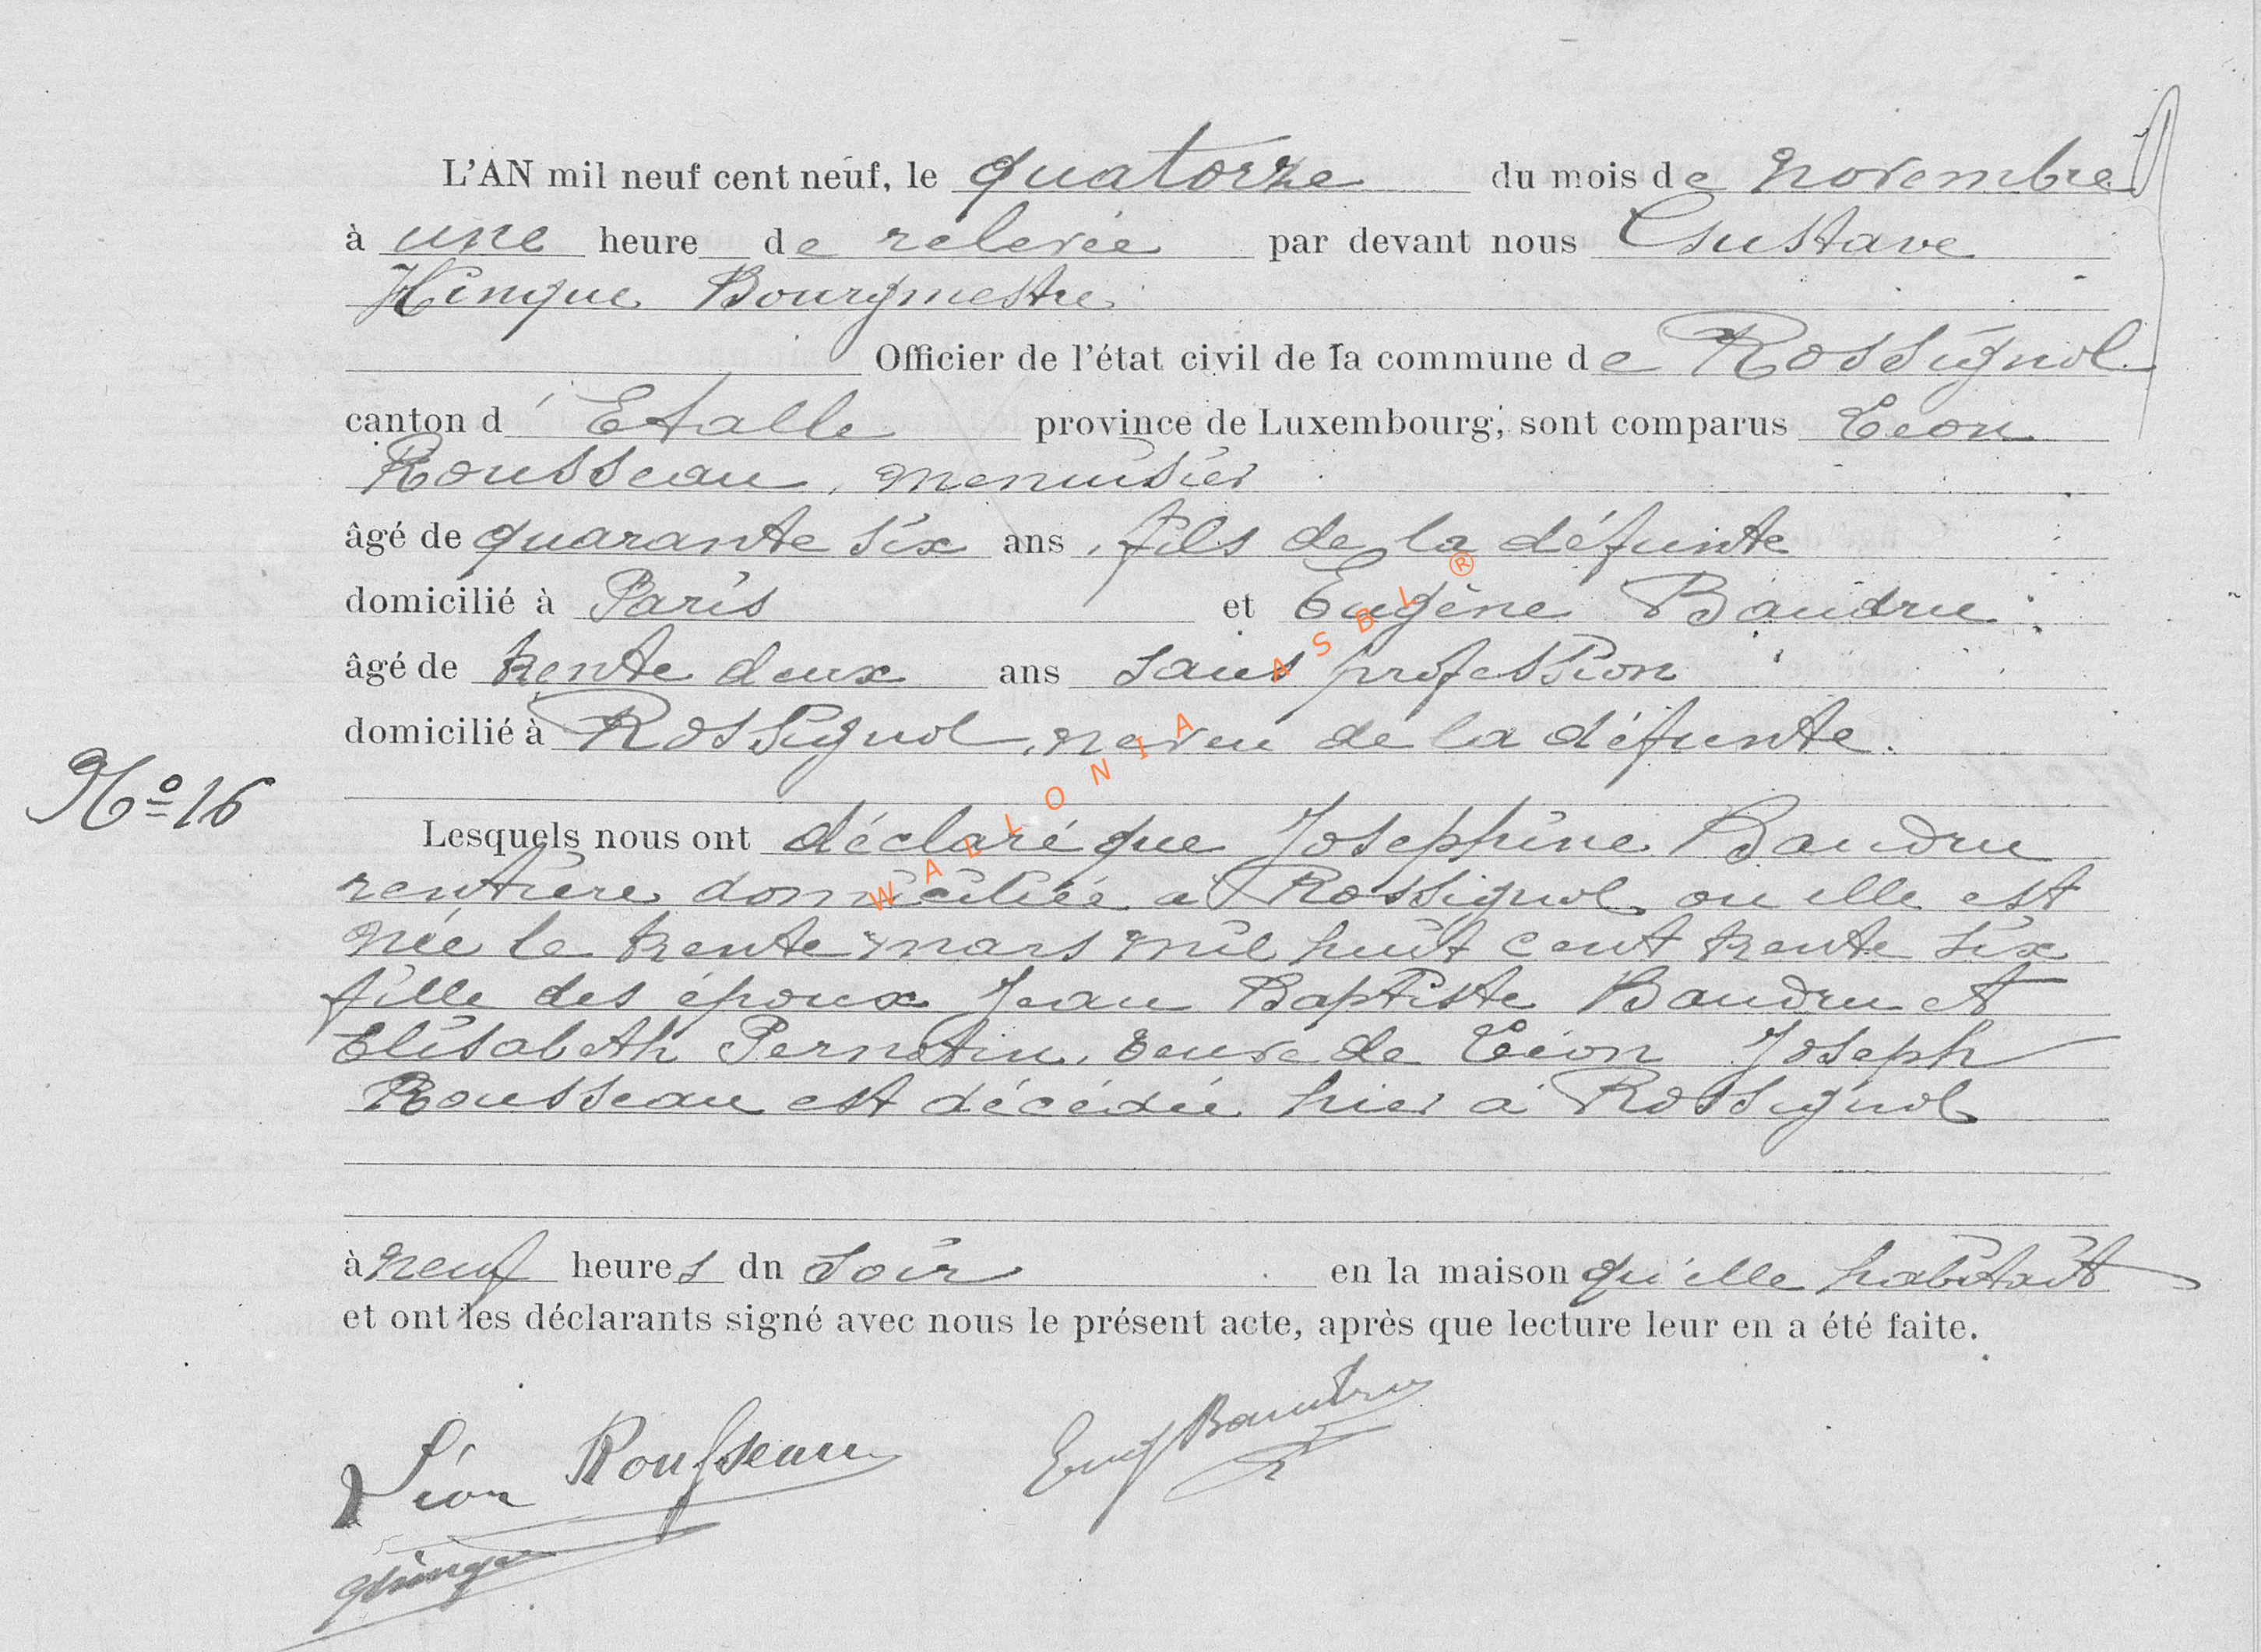 L'AN mil neuf cent neuf, le quatorze du mois de novembre
à une heure de relevée par devant nous Gustave
Hinque Bourgmestre
Officier de l'état civil de la commune de Rossignol
canton d'Etalle province de Luxembourg, sont comparus Léon
Rousseau, menuisier
âgé de quarante six ans, fils de la défunte
domicilié à Paris et Eugène Baudru
âgé de trente deux ans sans profession
domicilié à Rossignol, neveu de la défunte.
No 16
Lesquels nous ont déclaré que Josephine Baudru
rentière domiciliée a Rossignol ou elle est
née le trente mars mil huit cent trente six
fille des époux Jean Baptiste Baudru et
Elisabeth Pernotin, veuve de Léon Joseph
Rousseau est décédée hier a Rossignol
à neuf heures du soir en la maison qu'elle habitait
et ont les déclarants signé avec nous le présent acte, après que lecture leur en a été faite.
Léon Rousseau Eug Baudru
GHinque
WALLONIA ASBL ®